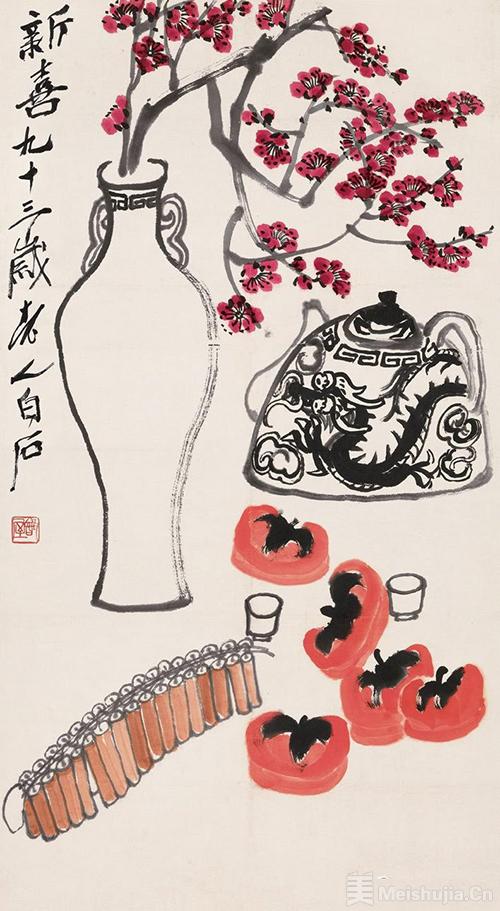 新喜九十三歲老人白石
美 Meishujia.Cn